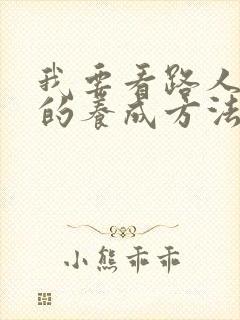 我要看路人
的养成方法
小熊乖乖